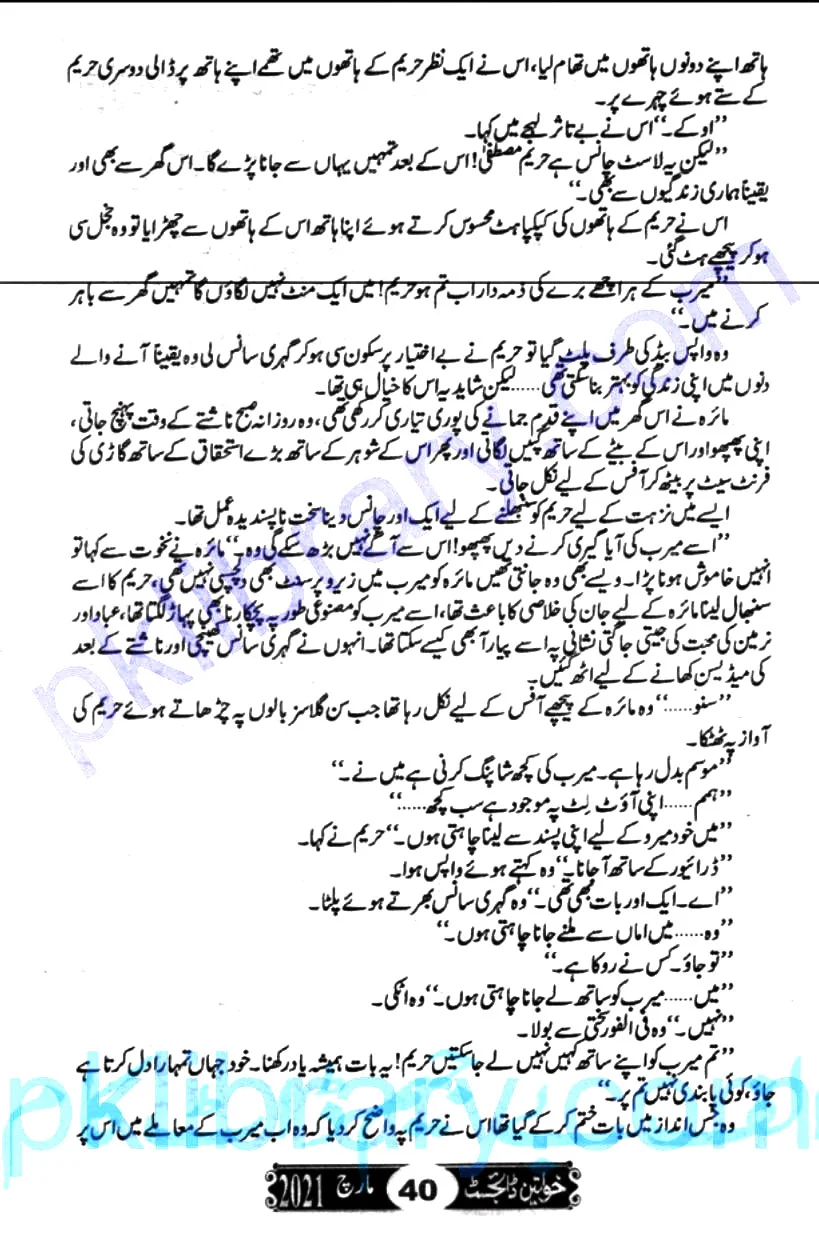 ہاتھ اپنے دونوں ہاتھوں میں تھام لیا، اس نے ایک نظر حریم کے ہاتھوں میں تھمے اپنے ہاتھ پر ڈالی دوسری حریم
کے ستے ہوئے چہرے پر۔
”اوکے۔“ اس نے بے تاثر لہجے میں کہا۔
”لیکن یہ لاسٹ چانس ہے حریم مصطفیٰ! اس کے بعد تمہیں یہاں سے جانا پڑے گا۔ اس گھر سے بھی اور
یقیناً ہماری زندگیوں سے بھی۔“
اس نے حریم کے ہاتھوں کی کپکپاہٹ محسوس کرتے ہوئے اپنا ہاتھ اس کے ہاتھوں سے چھڑایا تو وہ خجل سی
ہو کر پیچھے ہٹ گئی۔
”میرب کے ہر اچھے برے کی ذمہ دار اب تم ہو حریم! میں ایک منٹ نہیں لگاؤں گا تمہیں گھر سے باہر
کرنے میں۔“
وہ واپس بیڈ کی طرف پلٹ گیا تو حریم نے بے اختیار پرسکون سی ہو کر گہری سانس لی وہ یقیناً آنے والے
دنوں میں اپنی زندگی کو بہتر بنا سکتی تھی ...... لیکن شاید یہ اس کا خیال ہی تھا۔
مائرہ نے اس گھر میں اپنے قدم جمانے کی پوری تیاری کر رکھی تھی، وہ روزانہ صبح ناشتے کے وقت پہنچ جاتی،
اپنی پھپھو اور اس کے بیٹے کے ساتھ گپیں لگاتی اور پھر اس کے شوہر کے ساتھ بڑے استحقاق کے ساتھ گاڑی کی
فرنٹ سیٹ پر بیٹھ کر آفس کے لیے نکل جاتی۔
ایسے میں نزہت کے لیے حریم کو سنبھلنے کے لیے ایک اور چانس دینا سخت ناپسندیدہ عمل تھا۔
”اسے میرب کی آیا گیری کرنے دیں پھپھو! اس سے آگے نہیں بڑھ سکے گی وہ۔“ مائرہ نے نخوت سے کہا تو
انہیں خاموش ہونا پڑا۔ ویسے بھی وہ جانتی تھیں مائرہ کو میرب میں زیرو پرسنٹ بھی دلچسپی نہیں تھی، حریم کا اسے
سنبھال لینا مائرہ کے لیے جان کی خلاصی کا باعث تھا، اسے میرب کو مصنوعی طور پہ پچکارنا بھی پہاڑ لگتا تھا، عباد اور
نرمین کی محبت کی جیتی جاگتی نشانی پہ اسے پیار آ بھی کیسے سکتا تھا۔ انہوں نے گہری سانس کھینچی اور ناشتے کے بعد
کی میڈیسن کھانے کے لیے اٹھ گئیں۔
”سنو......“ وہ مائرہ کے پیچھے آفس کے لیے نکل رہا تھا جب سن گلاسز بالوں پہ چڑھاتے ہوئے حریم کی
آواز پہ ٹھٹکا۔
”موسم بدل رہا ہے۔ میرب کی کچھ شاپنگ کرنی ہے میں نے۔“
”ہمم ...... اپنی آؤٹ لٹ پہ موجود ہے سب کچھ ......“
”میں خود میرو کے لیے اپنی پسند سے لینا چاہتی ہوں۔“ حریم نے کہا۔
”ڈرائیور کے ساتھ آ جانا۔“ وہ کہتے ہوئے واپس ہوا۔
”اے۔ ایک اور بات بھی تھی۔“ وہ گہری سانس بھرتے ہوئے پلٹا۔
”وہ ...... میں اماں سے ملنے جانا چاہتی ہوں۔“
”تو جاؤ۔ کس نے روکا ہے۔“
”میں ...... میرب کو ساتھ لے جانا چاہتی ہوں۔“ وہ اٹکی۔
”نہیں۔“ وہ فی الفور سختی سے بولا۔
”تم میرب کو اپنے ساتھ کہیں نہیں لے جا سکتیں حریم! یہ بات ہمیشہ یاد رکھنا۔ خود جہاں تمہارا دل کرتا ہے
جاؤ، کوئی پابندی نہیں تم پر۔“
وہ جس انداز میں بات ختم کر کے گیا تھا اس نے حریم پہ واضح کر دیا کہ وہ اب میرب کے معاملے میں اس پر
خواتین ڈائجسٹ 40 مارچ 2021
pklibrary.com
pklibrary.com